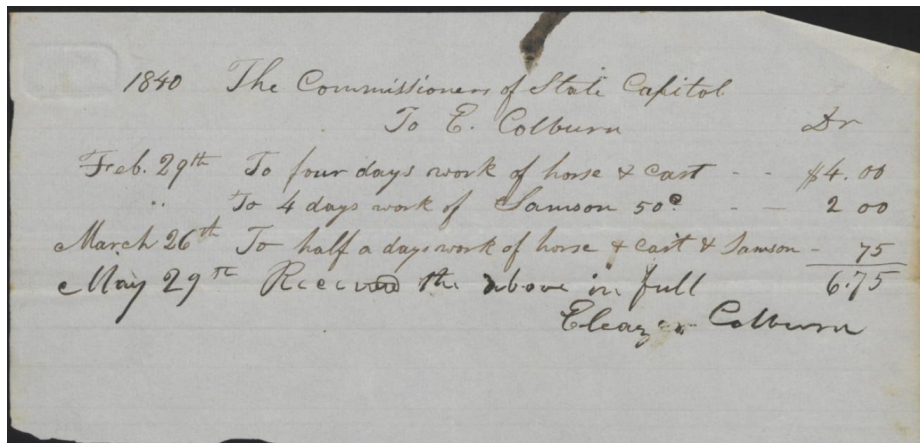 1840 The Commissioners of State Capitol
To E. Colburn Dr
Feb. 29th To four days work of horse & cart - - $4.00
" To 4 days work of Samson 50c - - 2 00
March 26th To half a days work of horse & cart & Samson - 75
May 29th Received the above in full 6.75
Eleazer Colburn